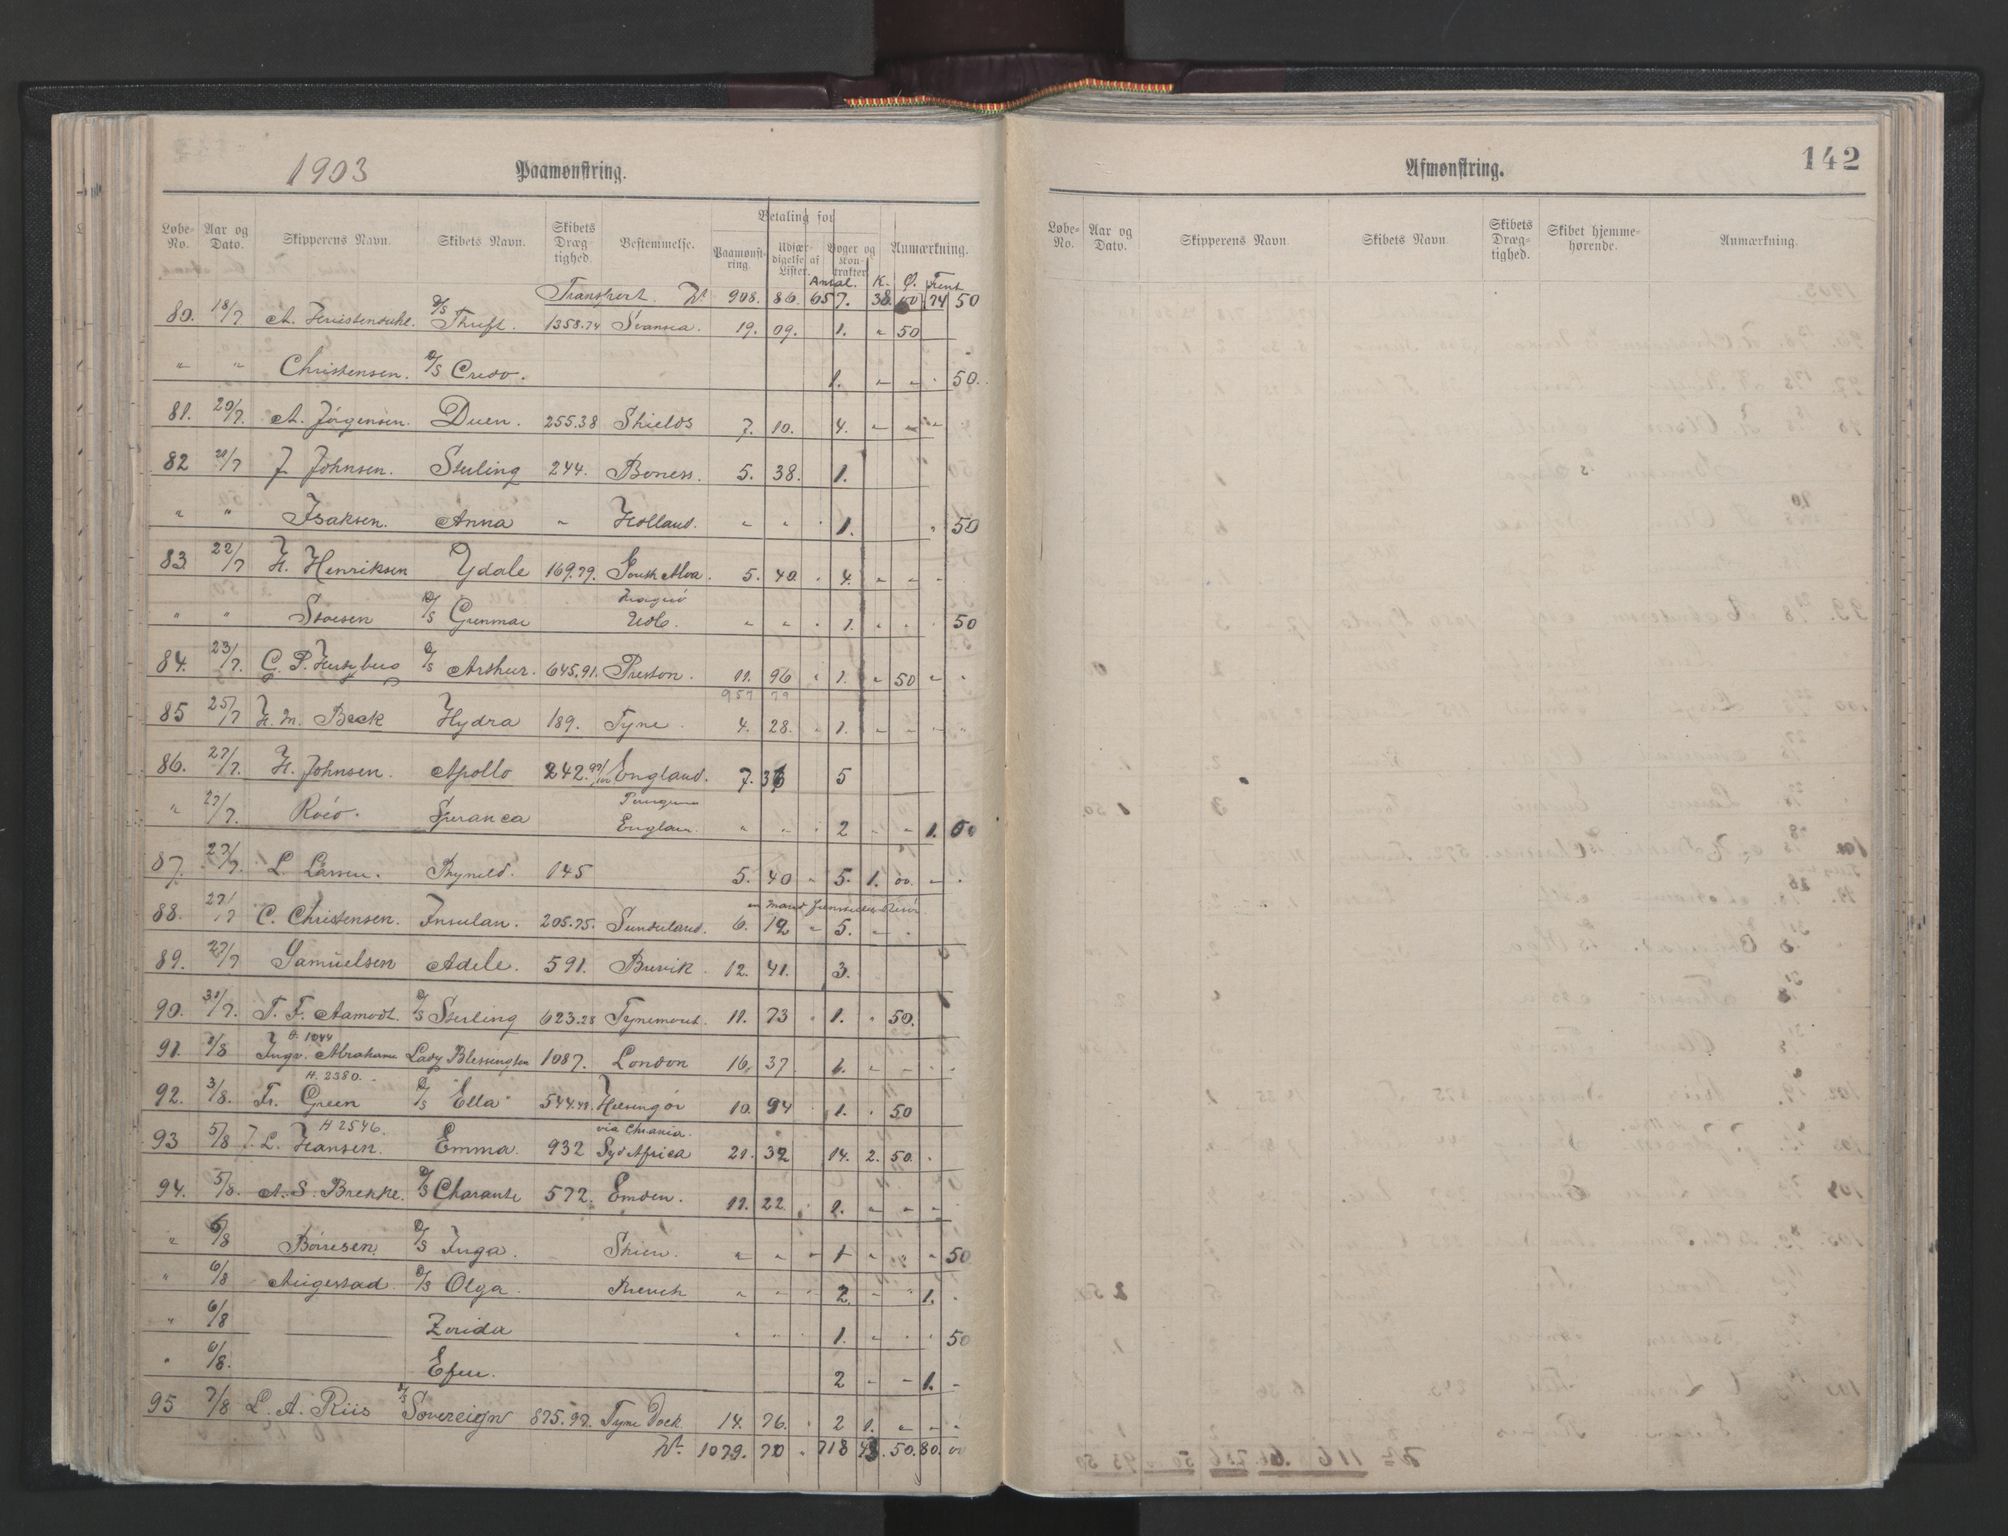 1903 Paamønstring.
Løbe-No. Aar og Dato. Skipperens Navn. Skibets Navn. Skibets Dræg-tighed. Bestemmelse. Betaling for Paamønst-ring. Udfær-digelse af Lister. Bøger og Kon-trakter Anmærkning.
Antal. K. Ø.
Transport. 908. 86. 657. 38. 00. 74 50
80. 18/7 A. D/S Thrift. 1358.74 Svansea. 19. 09. 1. " 50
" " Christensen. D/S Credo. 1. " " . 50.
81. 20/7. A. Jørgensen. Duen. 255.38 Shields 7. 10. 4. " " "
82 21/7 J. Johnsen. Sterling 244. Boness. 5. 38. 1.
" " Isaksen. Anna " Holland. " " . 1. " 50
83. 22/7 H. Henriksen Ydale 169.79. South Alva. 5. 40. . 4. " " "
" " Stoesen D/S Grenmar Kragerø Udb. " " . 1. " " . 50
84. 23/7. C. P. Hertzberg D/S Arthur. 645.91. Preston. 11. 96 " 1. " 50 " "
957 79
85 25/7 H. M. Beck Hydra 189. Tyne. 4. 28. " 1. " " " "
86. 27/7. H. Johnsen. Apollo 242.99/100 England. 7. 36 5
" 27/7. Roed. Speranca England. " " . 2 " " 1. 50
87. 27/7. L. Larsen. Brynild. 145 5. 40 " 5. 1. 00. " .
88. 27/7 C. Christensen. Insulan. 205.75. Sunderland. 6. 12 " 5. " .
89. 27/7 Samuelsen Adele. 591. Brevik. 12. 41. 3.
90. 31/7. T. F. Aamodt. D/S Sterling 623.28 Tynemout. 11. 73 " 1. " 50.
91. 1/8 Ingv. Abrahams Lady Blessington 1087. London 16. 37. 6. " " . .
H. 2380.
92. 3/8. Fr. Green D/S "Ella" 544.49. Helsingør 10. 94 1. " 50
H 2546. via Chrania.
93 5/8 J. L. Hansen. Emma. 932 Syd Africa 21. 32 14. 2. 50. .
94. 5/8. A. S. Brekke. D/S Charante 572. Emden. 11. 22. 1. " " " .
" 6/8 Børresen. D/S Inga. Skien. " " " 1 " " " 50
" 6/8 Augestad. D/S Olga. " " " 2. " " 1. .
" 6/8 Zerida " " . 1. " . . 50
" 6/8. Efeu. 2 " " 1. "
95 7/8 L. A. Riis D/S Sovereign 875.97. Tyne Dock. 14. 76. . 2 1. " " "
1079. 70 " 718 43. 50. 80. 00
Afmønstring. 142
Løbe-No. Aar og Dato. Skipperens Navn. Skibets Navn. Skibets Dræg-tighed. Skibet hjemme-hørende. Anmærkning.